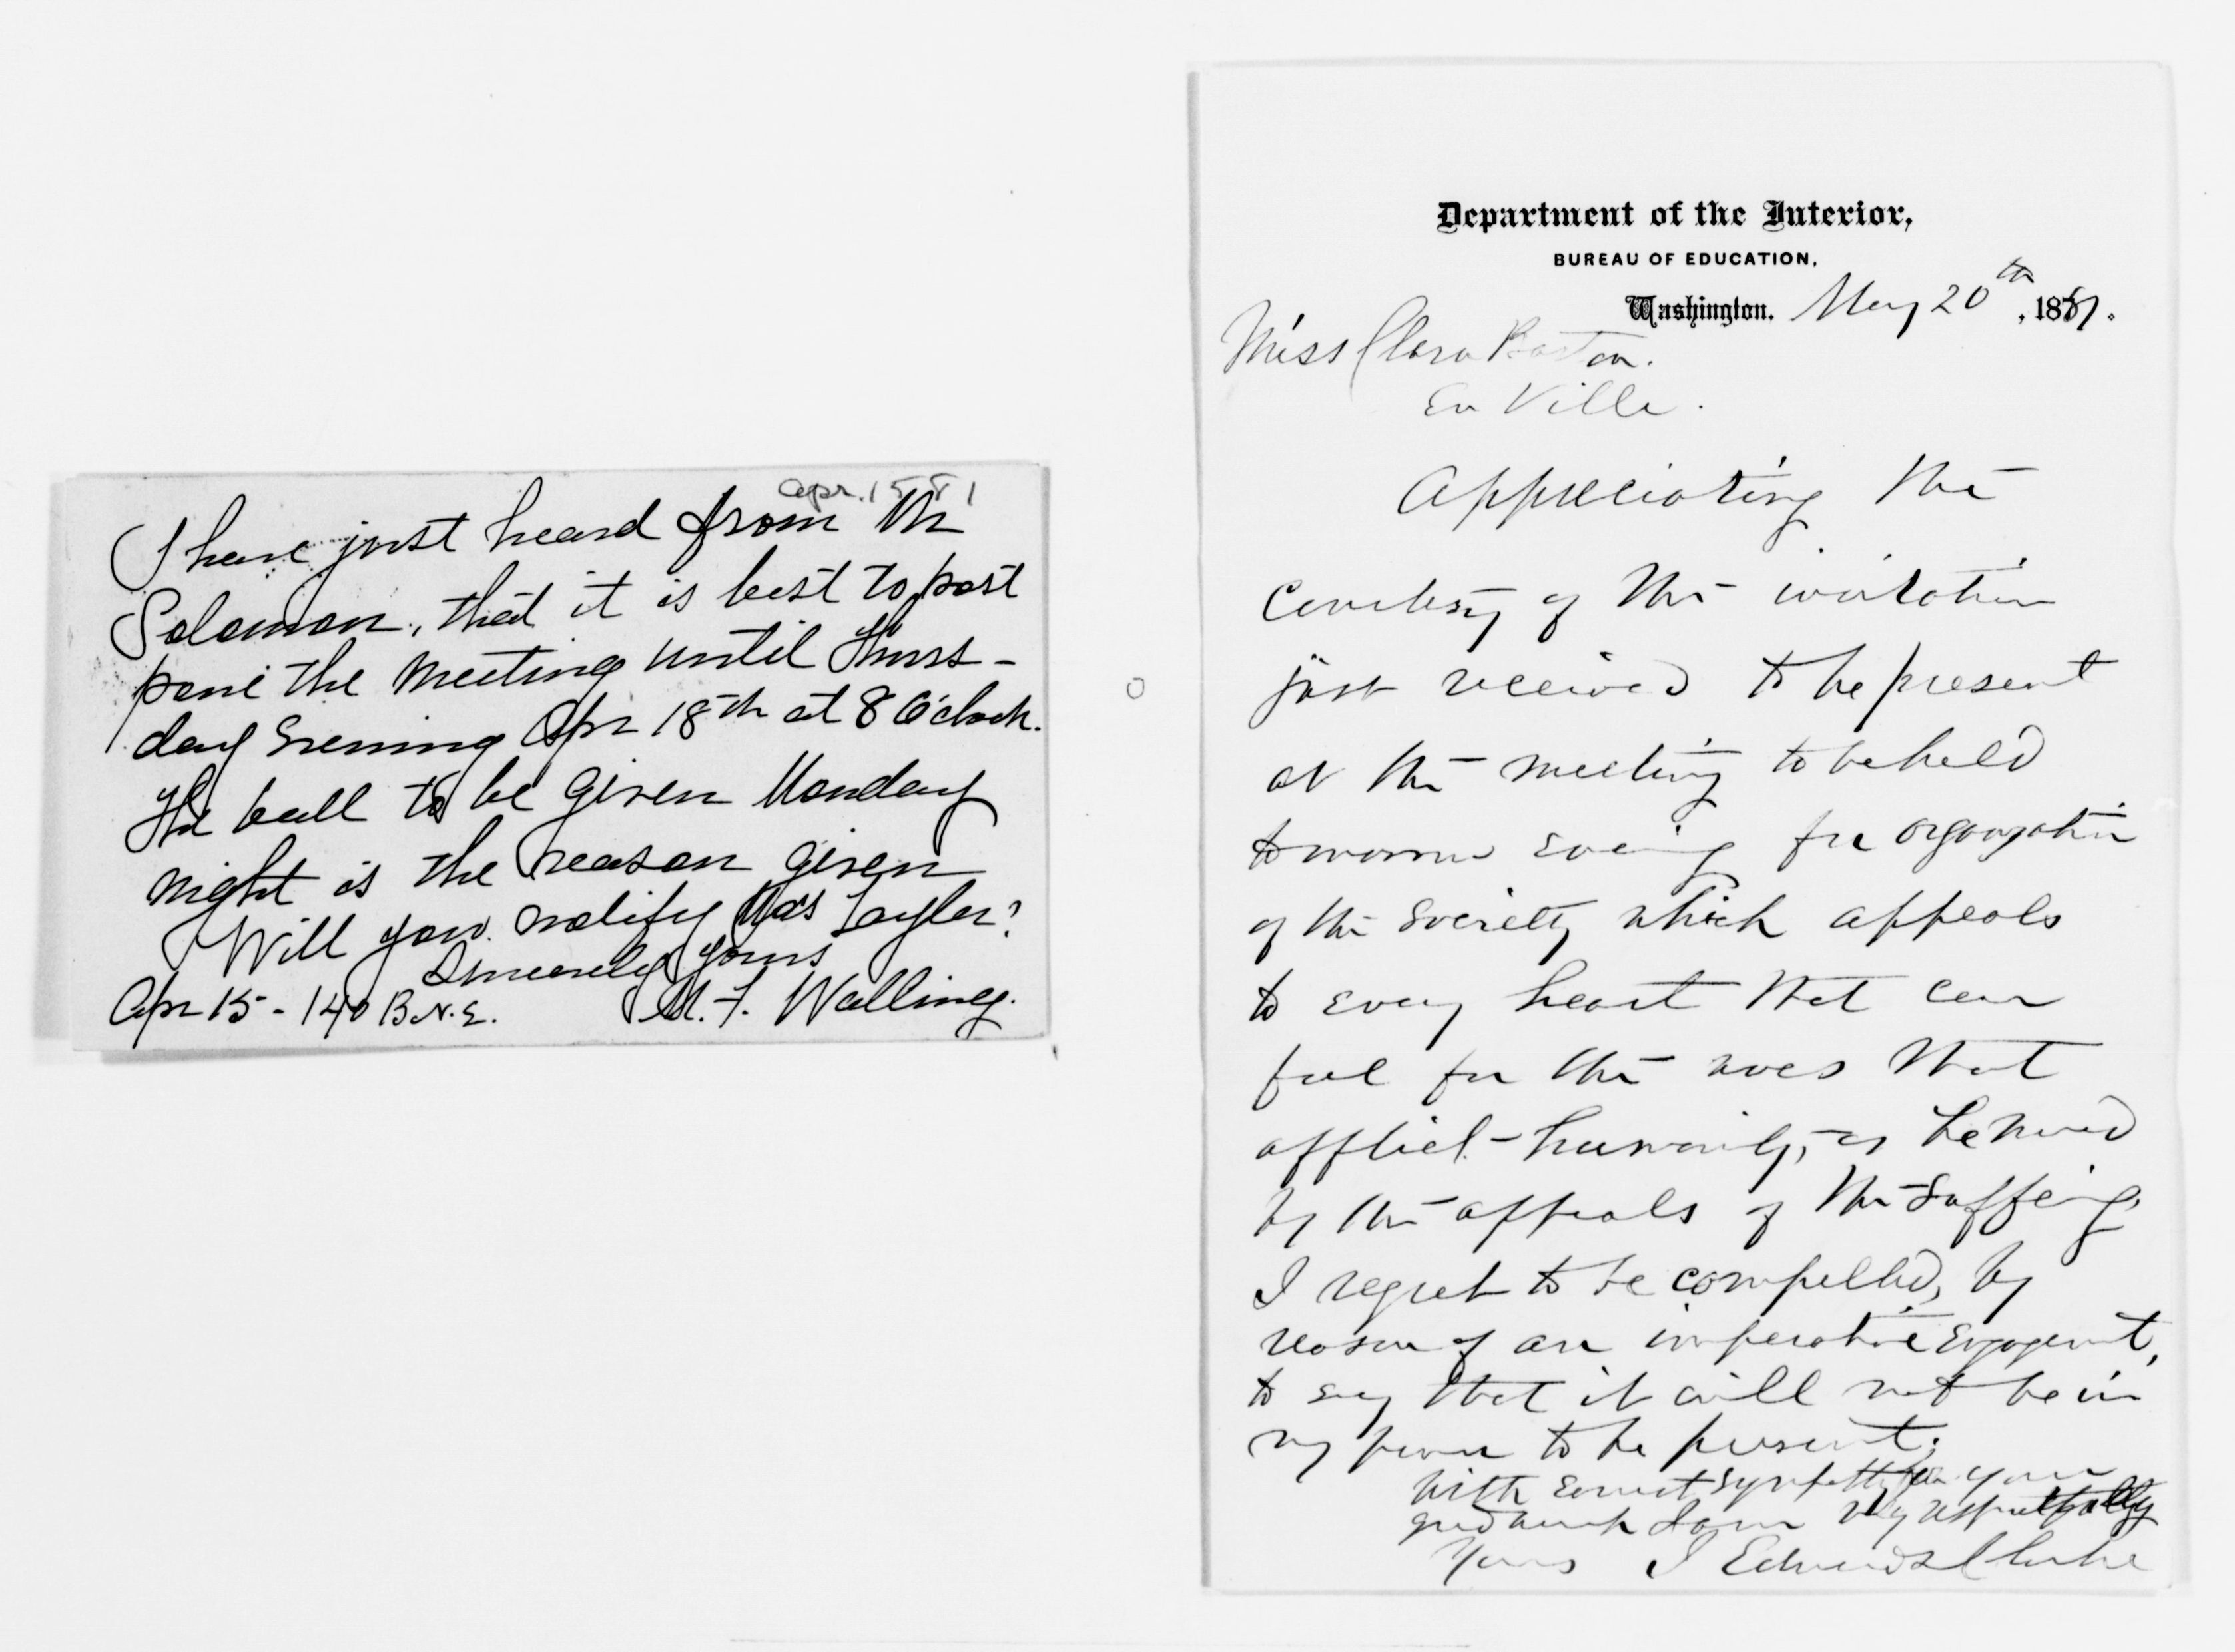 Apr. 15 81
I have just heard from Mr
Solomon, that it is best to post
pone the meeting until Thurs-
day evening Apr 18th at 8 O'clock.
The ball to be given Monday
night is the reason given
Will you notify Mrs Tayler?
Sincerely yours
Apr 15 - 140 B. N.E. M. F. Walling.
Department of the Interior,
BUREAU OF EDUCATION,
Washington. May 20th, 1881.
Miss Clara Barton.
En Ville.
Appreciating the
courtesy of the invitation
just received to be present
at the meeting to be held
tomorrow evening for organization
of the society which appeals
to every heart that can
feel for the woes that
afflict humanity, or be moved
by the appeals of the suffering,
I regret to be compelled, by
reason of an imperative engagement,
to say that it will not be in
my power to be present;
With earnest sympathy for your
good work I am very respectfully
Yours I Edwards Clarke